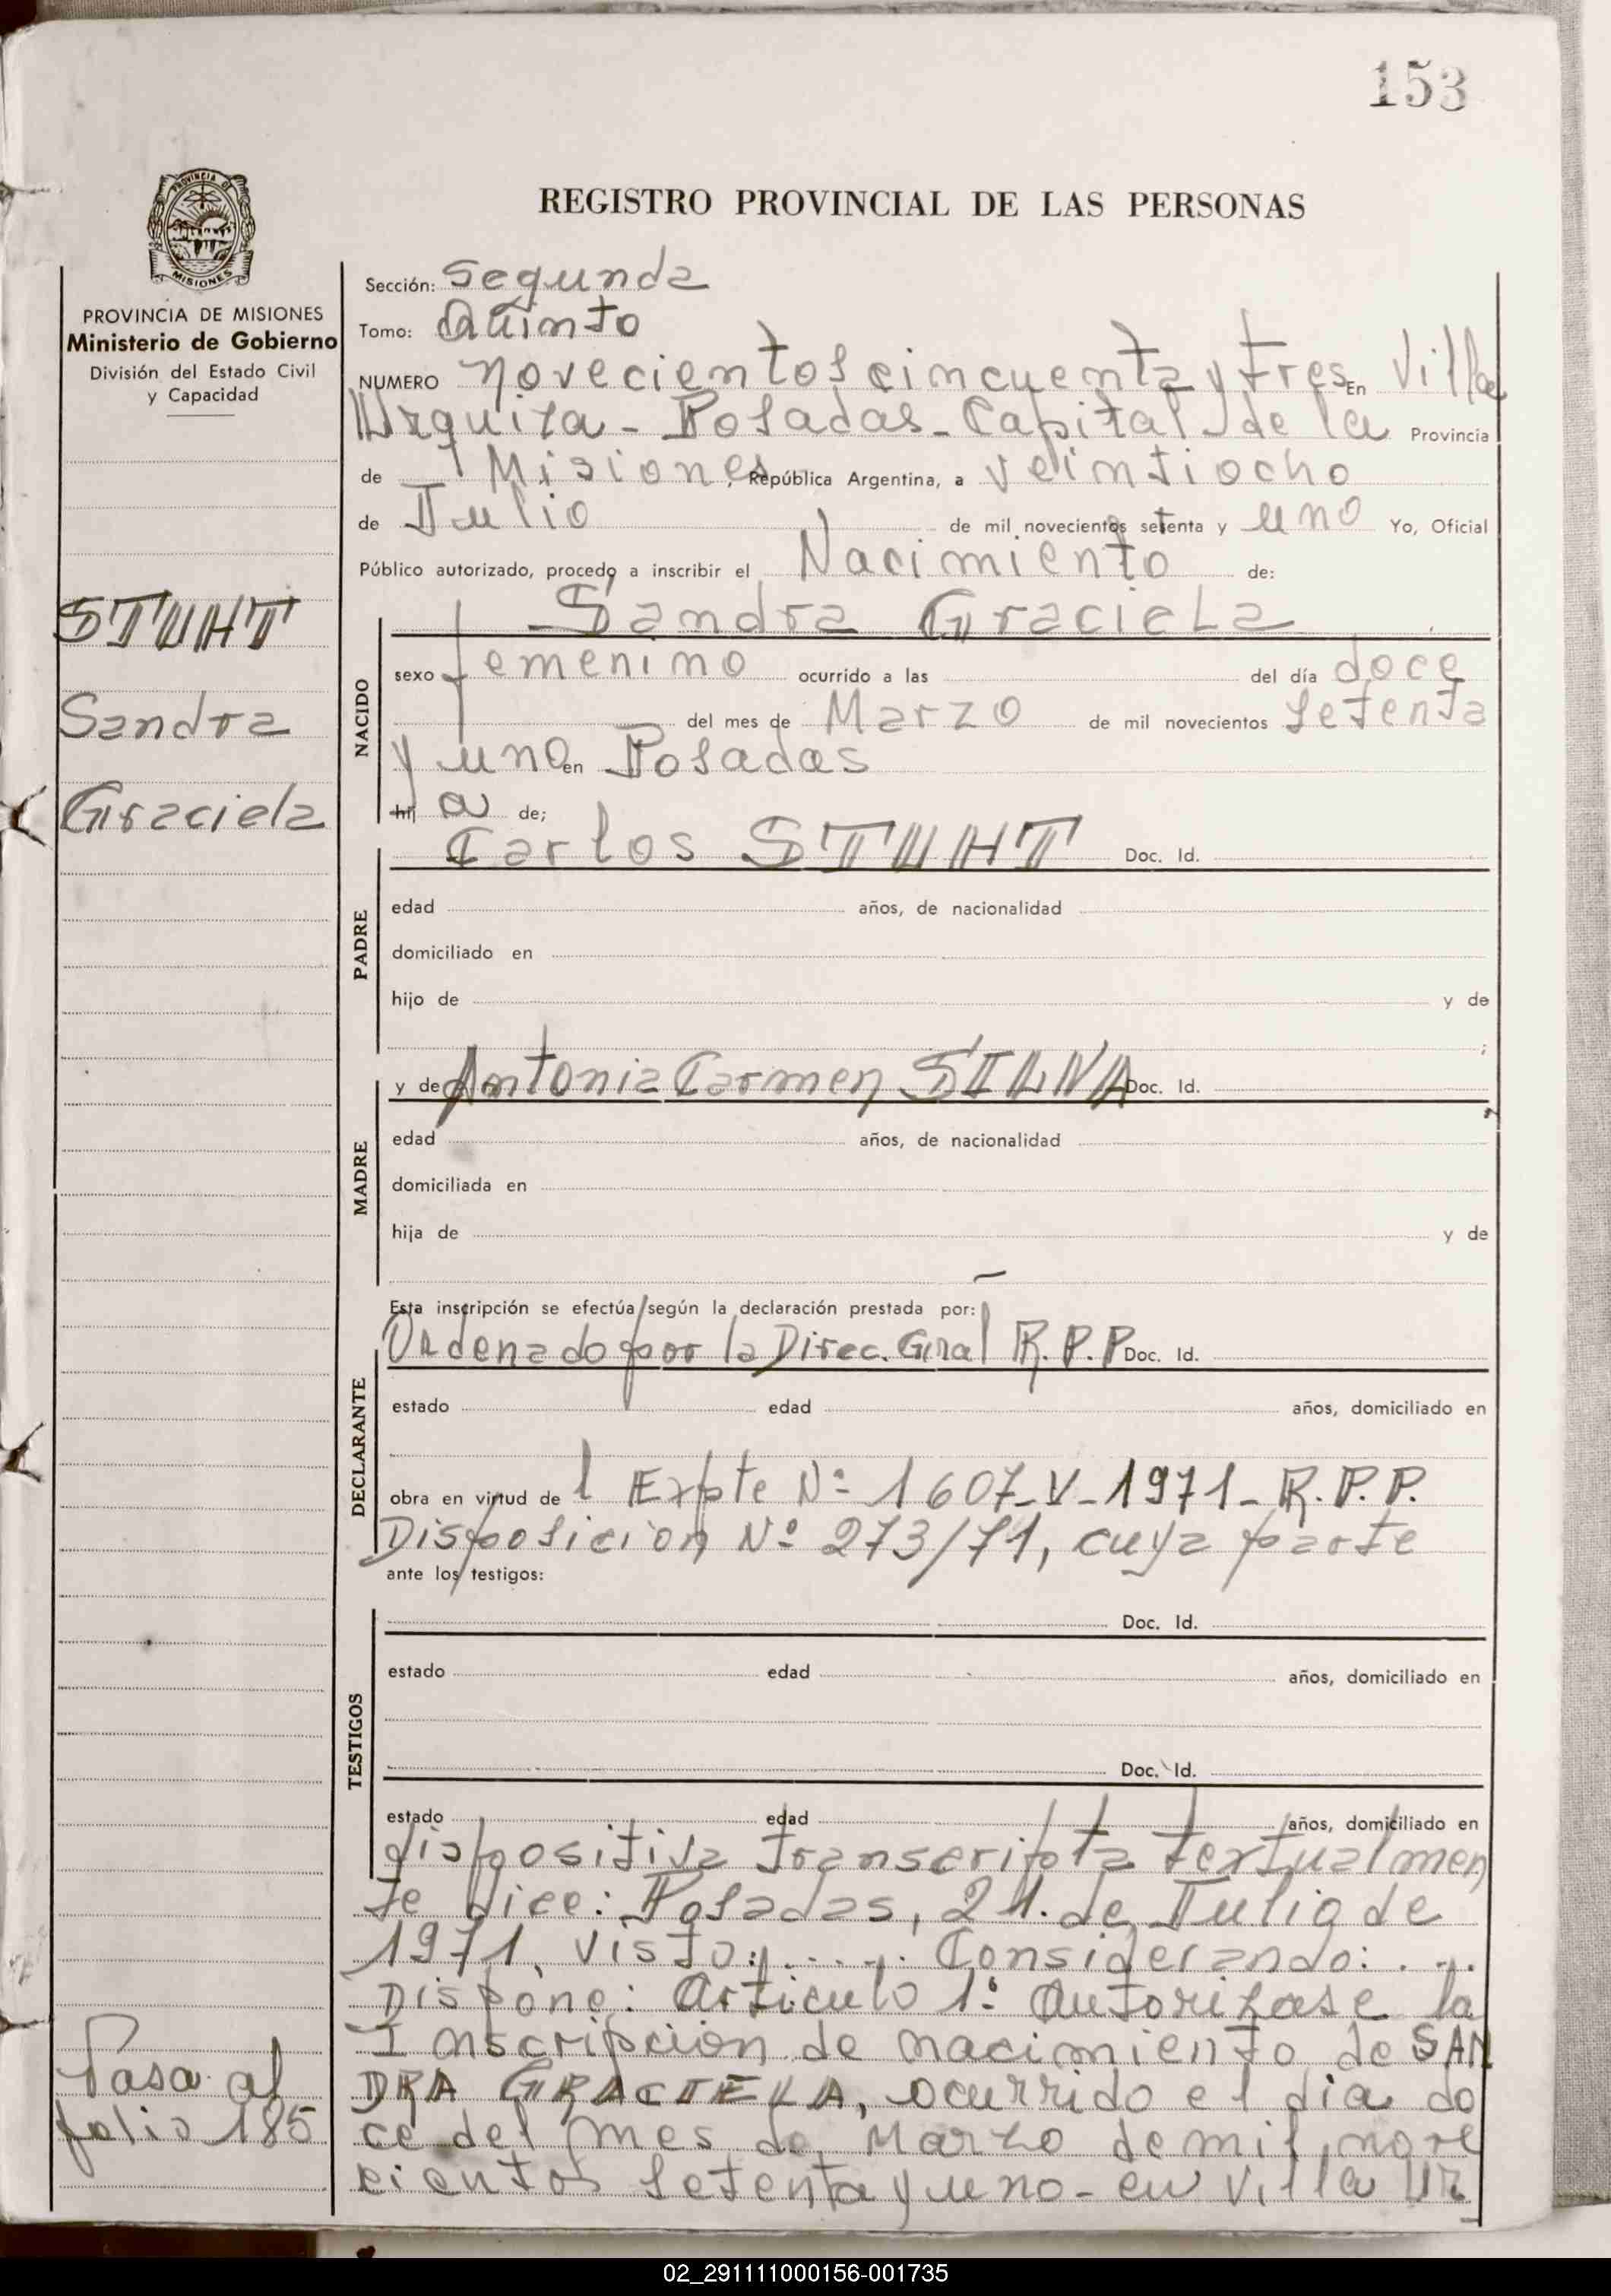 153
PROVINCIA DE
MISIONES
REGISTRO PROVINCIAL DE LAS PERSONAS
PROVINCIA DE MISIONES
Ministerio de Gobierno
División del Estado Civil
y Capacidad
STUHT
Sandra
Graciela
Pasa al
folio 185
Sección: Segunda
Tomo: Quinto
NUMERO novecientos cincuenta y tres En Villa
Urquiza - Posadas - Capital de la Provincia
de Misiones, República Argentina, a veintiocho
de Julio de mil novecientos setenta y uno Yo, Oficial
Público autorizado, procedo a inscribir el Nacimiento de:
Sandra Graciela
NACIDO
sexo femenino ocurrido a las del día doce
del mes de Marzo de mil novecientos setenta
y uno en Posadas
hij a de;
Carlos STUHT Doc. Id.
PADRE
edad años, de nacionalidad
domiciliado en
hijo de y de
;
y de Antonia Carmen SILVA Doc. Id.
MADRE
edad años, de nacionalidad
domiciliada en
hija de y de
Esta inscripción se efectúa según la declaración prestada por:
Ordenado por la Direc. Gral R.P.P Doc. Id.
DECLARANTE
estado edad años, domiciliado en
obra en virtud de l Expte Nº 1607-V-1971-R.P.P.
Disposicion Nº 273/71, cuya parte
ante los testigos:
Doc. Id.
TESTIGOS
estado edad años, domiciliado en
Doc. Id.
estado edad años, domiciliado en
dispositiva transcripta textualmen
te dice: Posadas, 21. de Julio de
1971, visto:..... Considerando: ...
Dispone: Articulo 1º Autorizase la
Inscripcion de nacimiento de SAN
DRA GRACIELA, ocurrido el dia do
ce del mes de Marzo de mil nove
cientos setenta y uno - en Villa Ur
02_291111000156-001735